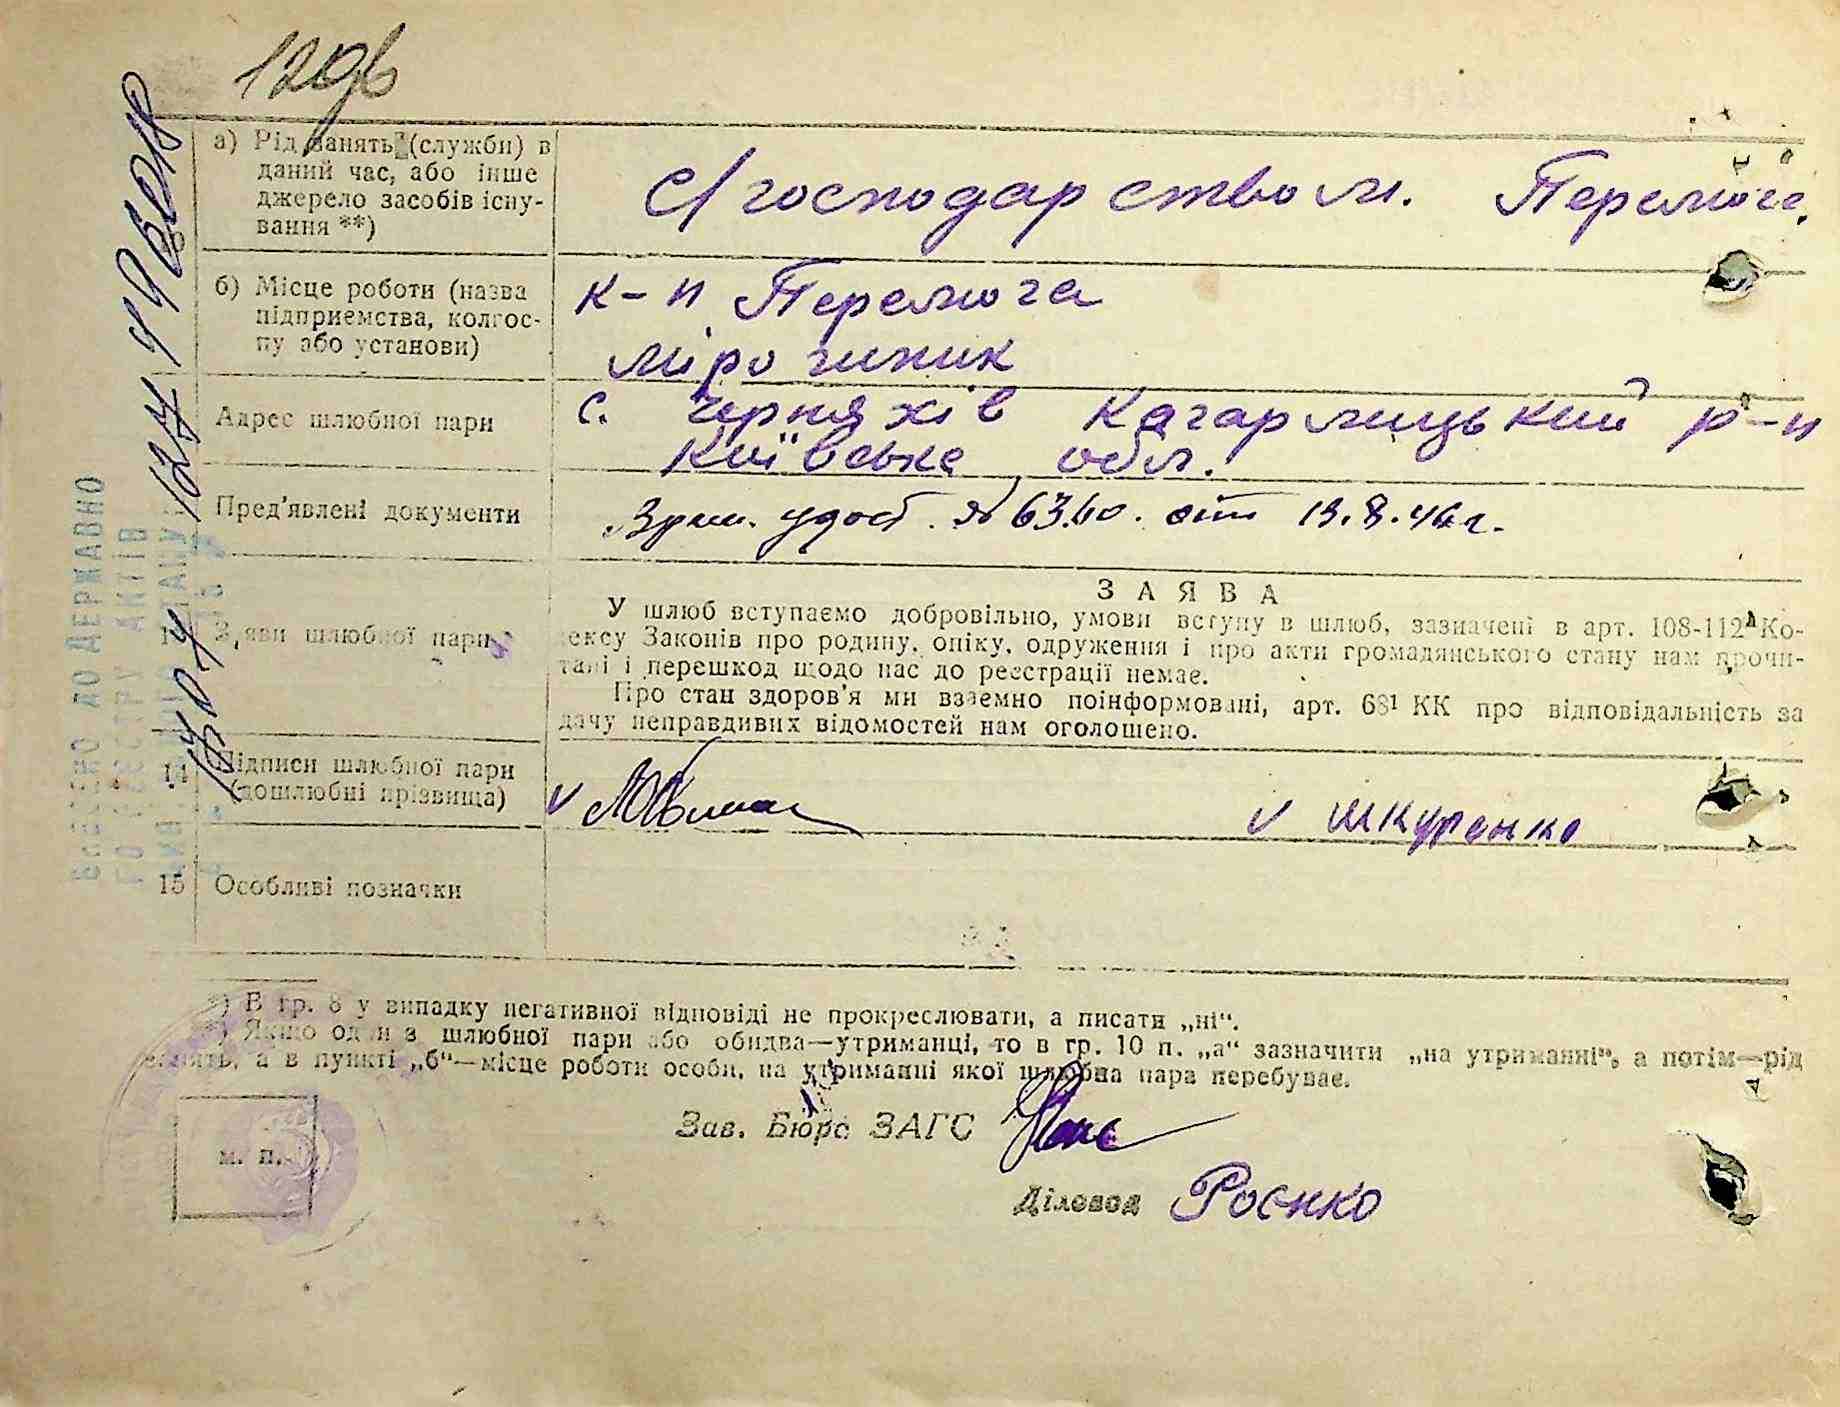 а) Рід занять (служби) в
даний час, або інше
джерело засобів існу-
вання **)
с/господарством. Перемога
б) Місце роботи (назва
підприємства, колгос-
пу або установи)
к-п Перемога
Мірочиник
Адрес шлюбної пари
с. Черняхів Кагарлицький р-н
Київська обл.
Пред'явлені документи
удост. № 6340. от 13.8.46 г.
13 Заяви шлюбної пари
ЗАЯВА
У шлюб вступаємо добровільно, умови вступу в шлюб, зазначені в арт. 108-112 Ко-
ексу Законів про родину, опіку, одруження і про акти громадянського стану нам прочи-
тані і перешкод щодо нас до реєстрації немає.
Про стан здоров'я ми взаємно поінформовані, арт. 68¹ КК про відповідальність за
дачу неправдивих відомостей нам оголошено.
14 Підписи шлюбної пари
(дошлюбні прізвища)
v
v Шкуренко
15 Особливі позначки
*) В гр. 8 у випадку негативної відповіді не прокреслювати, а писати „ні“.
**) Якщо один з шлюбної пари або обидва—утриманці, то в гр. 10 п. „а“ зазначити „на утриманні“, а потім—рід
занять, а в пункті „б“—місце роботи особи, на утриманні якої шлюбна пара перебуває.
Зав. Бюро ЗАГС
м. п.
Діловод Роєнко
ВНЕСЕНО ДО ДЕРЖАВНО
ГО РЕЄСТРУ АКТІВ